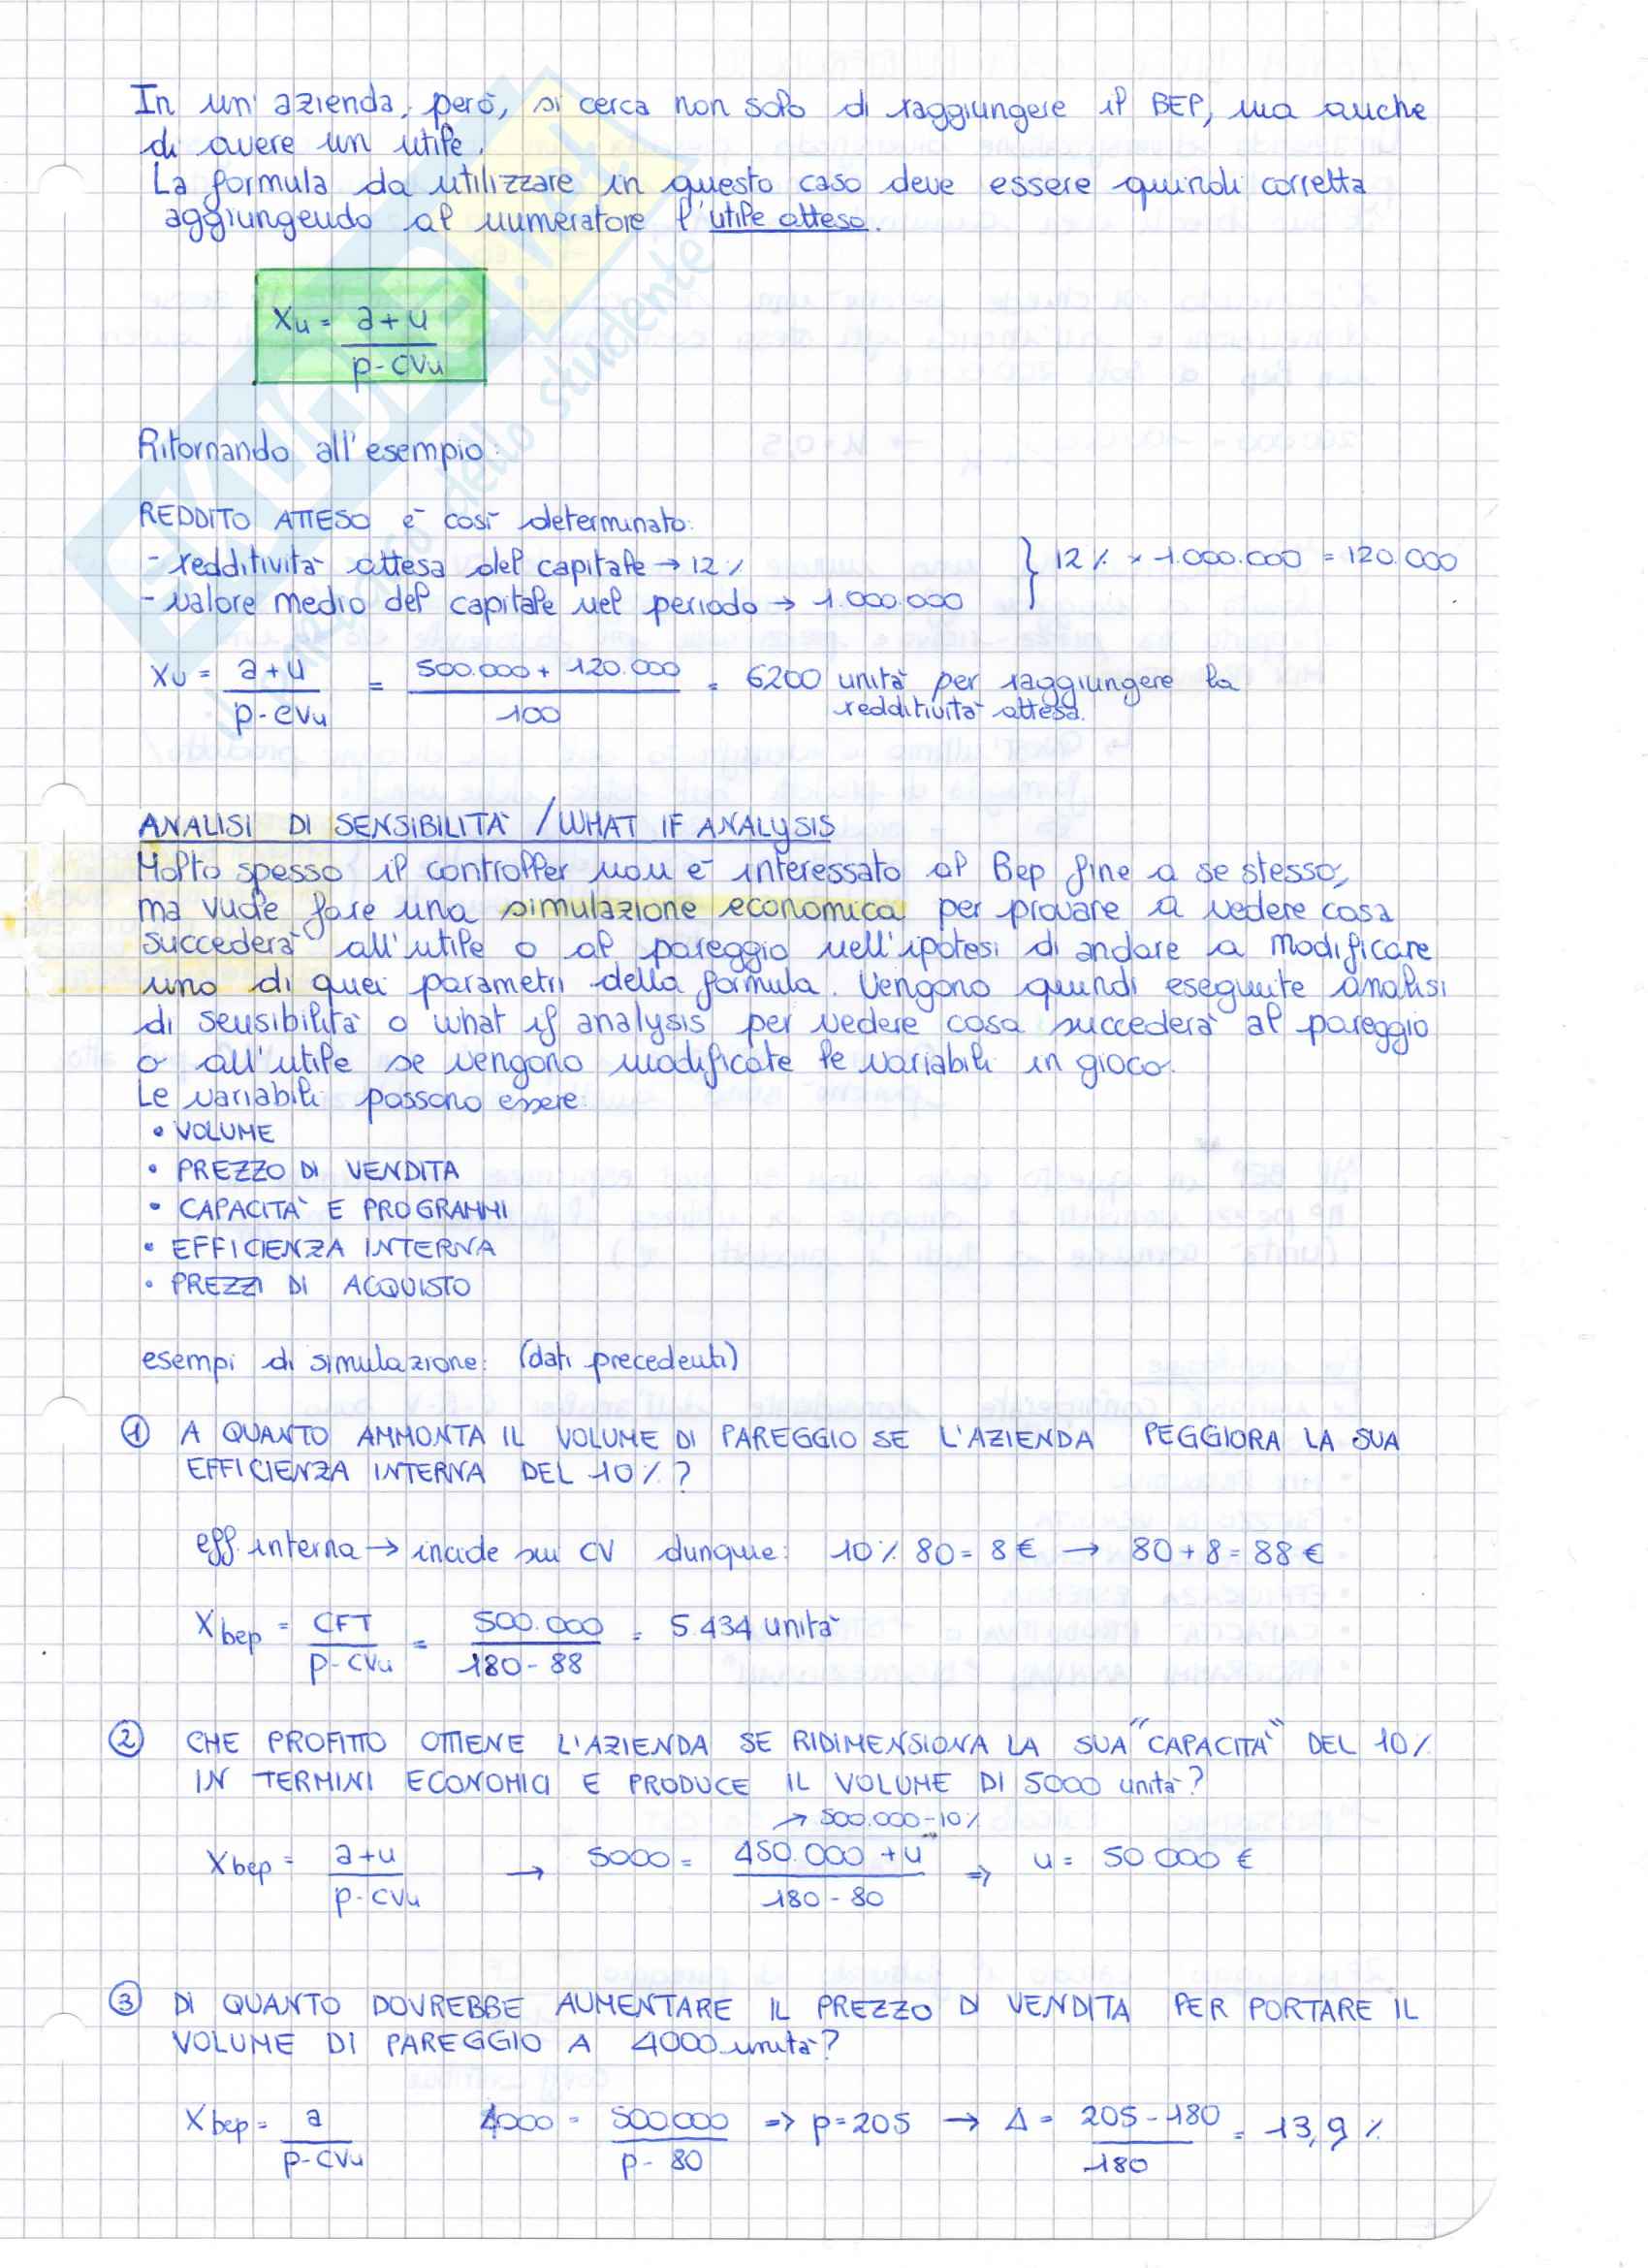 In un'azienda, però, si cerca non solo di raggiungere il BEP, ma anche
di avere un utile.
La formula da utilizzare in questo caso deve essere quindi corretta
aggiungendo al numeratore l'utile atteso.
Xu = a+u / p-CVu
Ritornando all'esempio:
REDDITO ATTESO è così determinato:
- redditività attesa del capitale → 12%
- valore medio del capitale nel periodo → 1.000.000
} 12% × 1.000.000 = 120.000
Xu = a+u / p-CVu = 500.000 + 120.000 / 100 = 6200 unità per raggiungere la
redditività attesa.
ANALISI DI SENSIBILITÀ / WHAT IF ANALYSIS
Molto spesso il controller non è interessato al Bep fine a se stesso,
ma vuole fare una simulazione economica per provare a vedere cosa
succederà all'utile o al pareggio nell'ipotesi di andare a modificare
uno di quei parametri della formula. Vengono quindi eseguite analisi
di sensibilità o what if analysis per vedere cosa succederà al pareggio
o all'utile se vengono modificate le variabili in gioco.
Le variabili possono essere:
• VOLUME
• PREZZO DI VENDITA
• CAPACITÀ E PROGRAMMI
• EFFICIENZA INTERNA
• PREZZI DI ACQUISTO
esempi di simulazione: (dati precedenti)
① A QUANTO AMMONTA IL VOLUME DI PAREGGIO SE L'AZIENDA PEGGIORA LA SUA
EFFICIENZA INTERNA DEL 10%?
eff. interna → incide sui CV dunque: 10% 80 = 8€ → 80+8 = 88€
Xbep = CFT / p-CVu = 500.000 / 180-88 = 5.434 unità
② CHE PROFITTO OTTIENE L'AZIENDA SE RIDIMENSIONA LA SUA "CAPACITÀ" DEL 10%
IN TERMINI ECONOMICI E PRODUCE IL VOLUME DI 5000 unità?
→ 500.000-10%
Xbep = a+u / p-CVu → 5000 = 450.000 + u / 180-80 ⇒ u = 50.000 €
③ DI QUANTO DOVREBBE AUMENTARE IL PREZZO DI VENDITA PER PORTARE IL
VOLUME DI PAREGGIO A 4000 unità?
Xbep = a / p-CVu 4000 = 500.000 / p-80 ⇒ p=205 → Δ = 205-180 / 180 = 13,9%